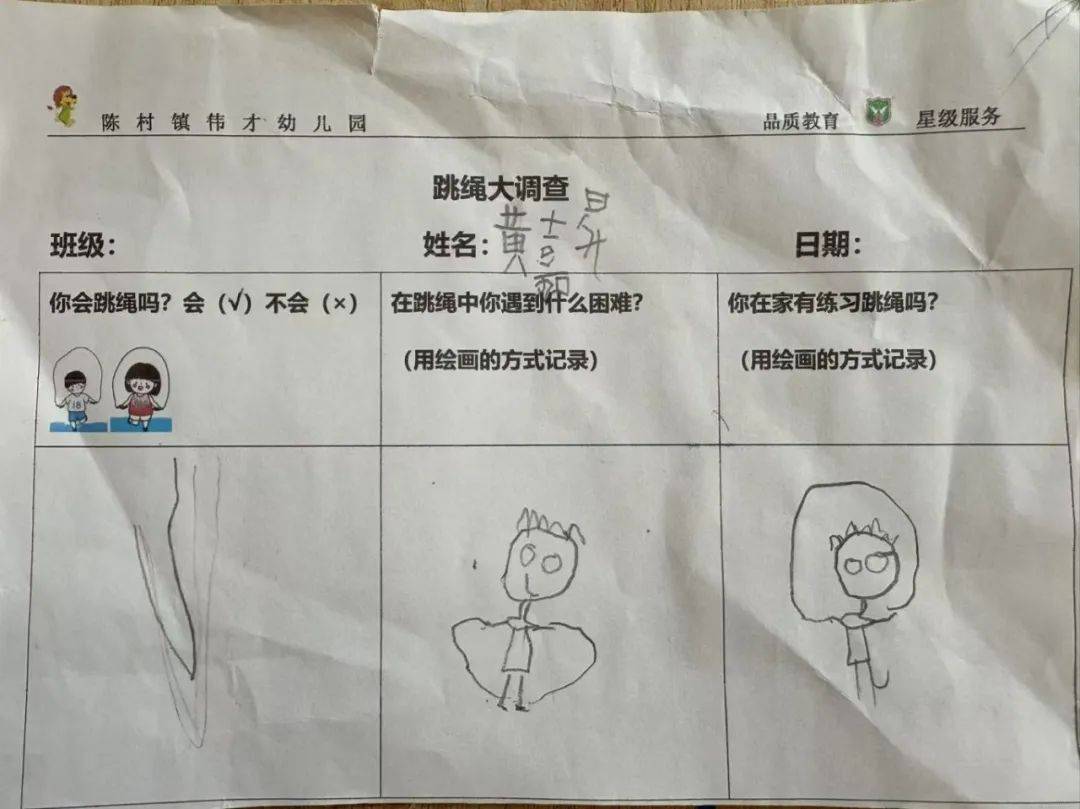 陈村镇伟才幼儿园 品质教育 星级服务
跳绳大调查
班级： 姓名：黄嘉昇 日期：
你会跳绳吗？会（√）不会（×）
在跳绳中你遇到什么困难？
（用绘画的方式记录）
你在家有练习跳绳吗？
（用绘画的方式记录）
18